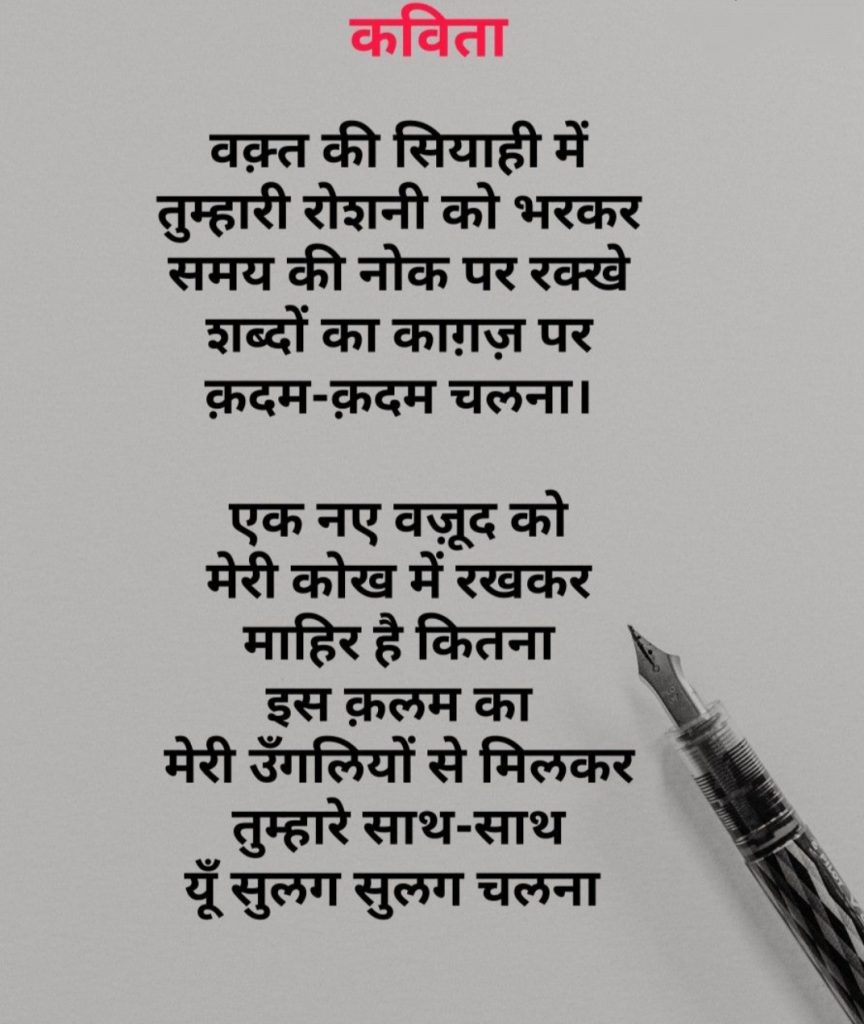 कविता
वक़्त की सियाही में
तुम्हारी रोशनी को भरकर
समय की नोक पर रक्खे
शब्दों का काग़ज़ पर
क़दम-क़दम चलना।
एक नए वज़ूद को
मेरी कोख में रखकर
माहिर है कितना
इस क़लम का
मेरी उँगलियों से मिलकर
तुम्हारे साथ-साथ
यूँ सुलग सुलग चलना